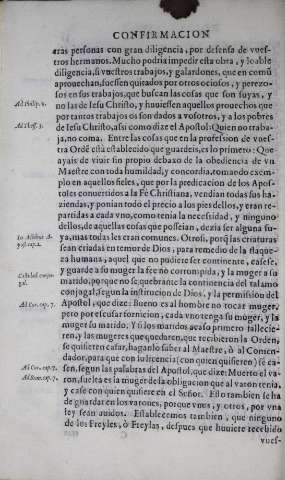 CONFIRMACION
tras personas con gran diligencia, por defensa de vues-
tros hermanos. Mucho podria impedir esta obra, y loable
diligencia, si vuestros trabajos, y galardones, que en comũ
aprouechan, fuessen quitados por otros ociosos, y perezo-
sos en sus trabajos, que buscan las cosas que son suyas, y
Ad Philip. 2.
no las de Iesu Christo, y huuiessen aquellos prouechos que
por tantos trabajos os son dados a vosotros, y a los pobres
Ad Thess. 3.
de Iesu Christo, assi como dize el Apostol: Quien no traba-
ja, no coma. Entre las cosas que en la profession de vues-
tra Ordẽ està establecido que guardeis, es lo primero: Que
ayais de viuir sin propio debaxo de la obediencia de vn
Maestre con toda humildad, y concordia, tomando exem-
plo en aquellos fieles, que por la predicacion de los Apos-
toles conuertidos a la Fè Christiana, vendian todas sus ha-
ziendas, y ponian todo el precio a los pies dellos, y eran re-
partidas a cada vno, como tenia la necessidad, y ninguno
dellos, de aquellas cosas que posseian, dezia ser alguna su-
ya, mas todas les eran comunes. Otrosi, porq̃ las criaturas
sean criadas en temor de Dios, para remedio de la flaque-
za humana, aquel que no pudiere ser continente, casese,
y guarde a su muger la fee no corrompida, y la muger a su
marido, porque no se quebrante la continencia del talamo
conjugal, segun la institucion de Dios, y la permission del
Ad Cor. cap. 7.
Apostol, que dize: Bueno es al hombre no tocar muger,
pero por escusar fornicion, cada vno tenga su muger, y la
muger su marido. Y si los maridos acaso primero fallecie-
ren, y las mugeres que quedaren, que recibieron la Orden,
se quisieren casar, haganlo saber al Maestre, ò al Comen-
dador, para què con su licencia (con quien quisieren) se ca-
Ad Cor. cap. 7.
sen, segun las palabras del Apostol, que dize: Muerto el va-
Ad Rom. cap. 7.
ron, suelta es la muger de la obligacion que al varon tenia,
y case con quien quisiere en el Señor. Esto tambien se ha
de guardar en los varones, porque vnos, y otros, por vna
ley sean auidos. Establecemos tambien, que ninguno
de los Freyles, ò Freylas, despues que huuiere recebido
vues-